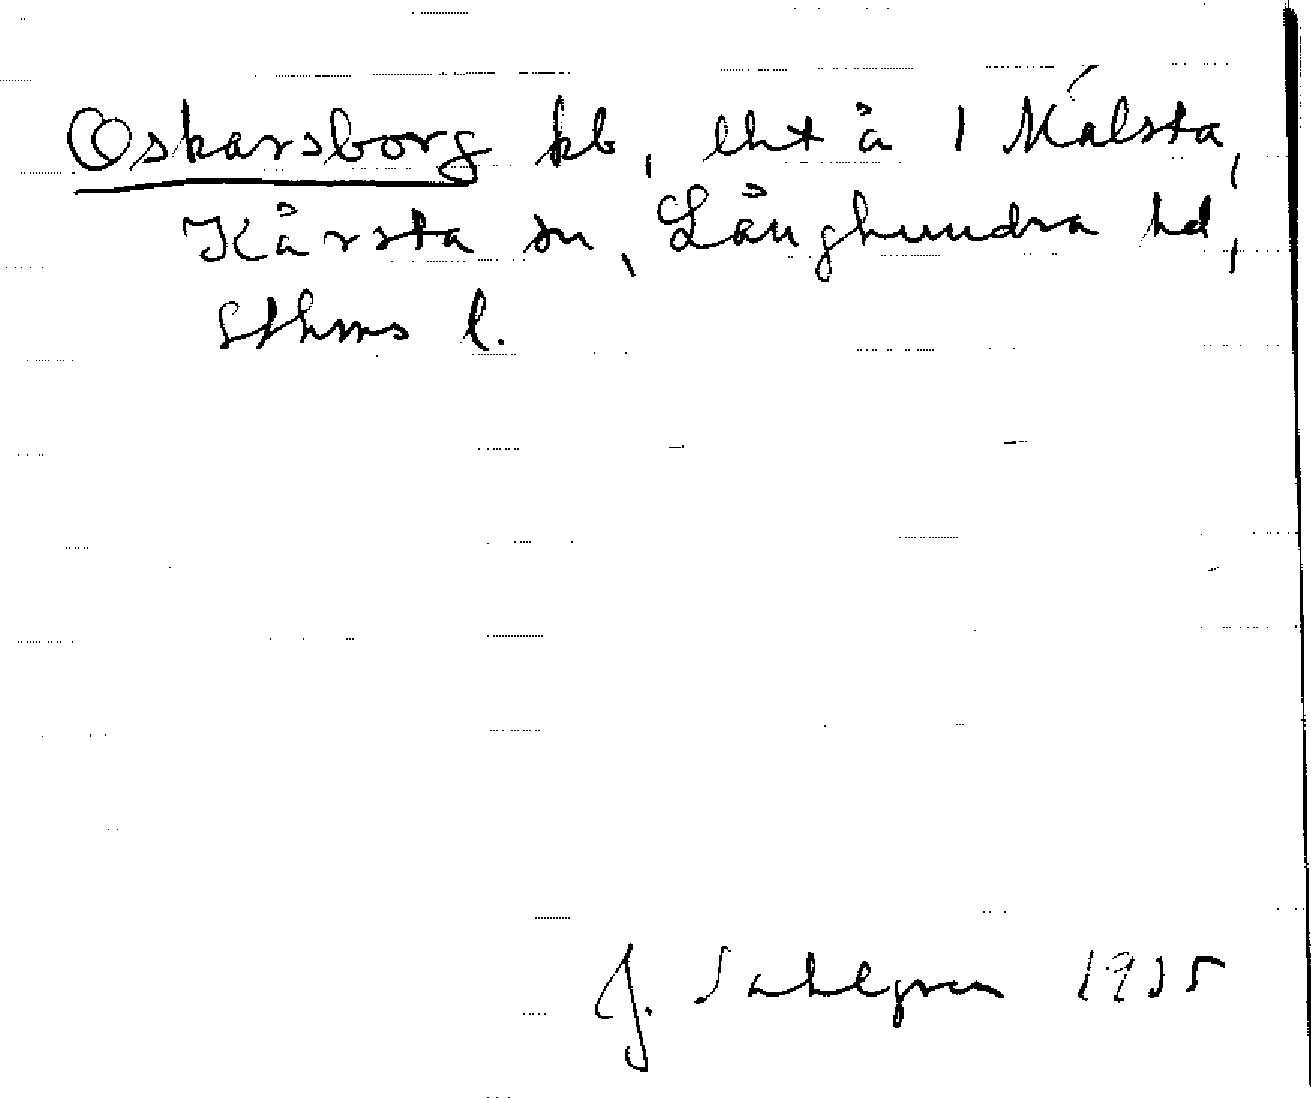 Oskarsborg kb, lht å 1 Målsta,
Kårsta sn, Långhundra hd,
Sthms l.
J. Sahlgren 1935